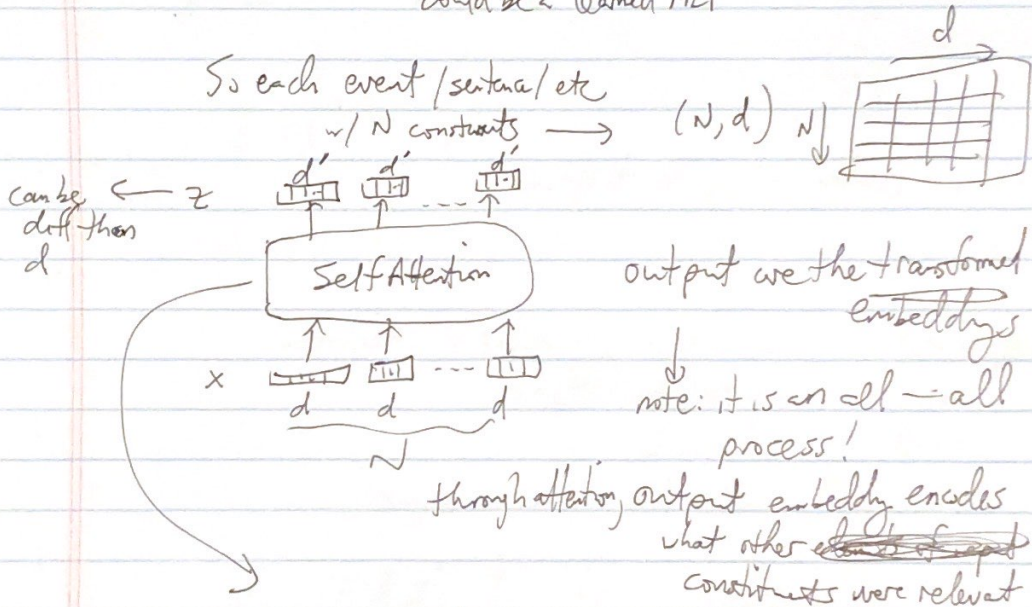 could be a learned MLP
d
So each event / sentence / etc
w/ N constituents → (N, d) N↓
d' d' d'
can be ← z
diff than
d
Self Attention
output are the transformed
embeddings
x
d d d
N
note: it is an all – all
process!
through attention, output embeddy encodes
what other
constituents were relevant